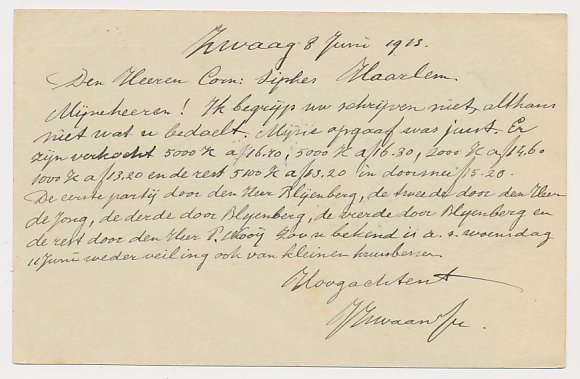 Zwaag 8 Juni 1913.
Den Heeren Corn: Sipkes Haarlem.
Mijneheeren! Ik begrijp uw schrijven niet, althans
niet wat u bedoelt. Mijne opgaaf was juist. Er
zijn verkocht 5000 K a f16.40, 5000 K a f16.30, 2000 K a f14.60
1000 K a f13.20 en de rest 5100 K a f13.20 in doorsnee f15.20.
De eerste partij door den Heer Blijenberg, de tweede door den Heer
de Jong, de derde door Blijenberg, de vierde door Blijenberg en
de rest door den Heer P. Kooij zoo u bekend is a. s. woensdag
11 Juni weder veiling ook van kleinen kruisbessen
Hoogachtend